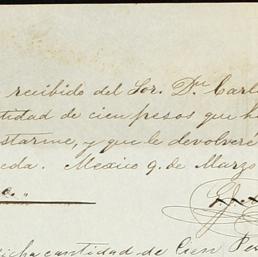 recibido del Sor. Dn Carl
tidad de cien pesos que h
starme, y que le devolveré
eda. Mexico 9. de Marzo
icha cantidad de Cien Pes